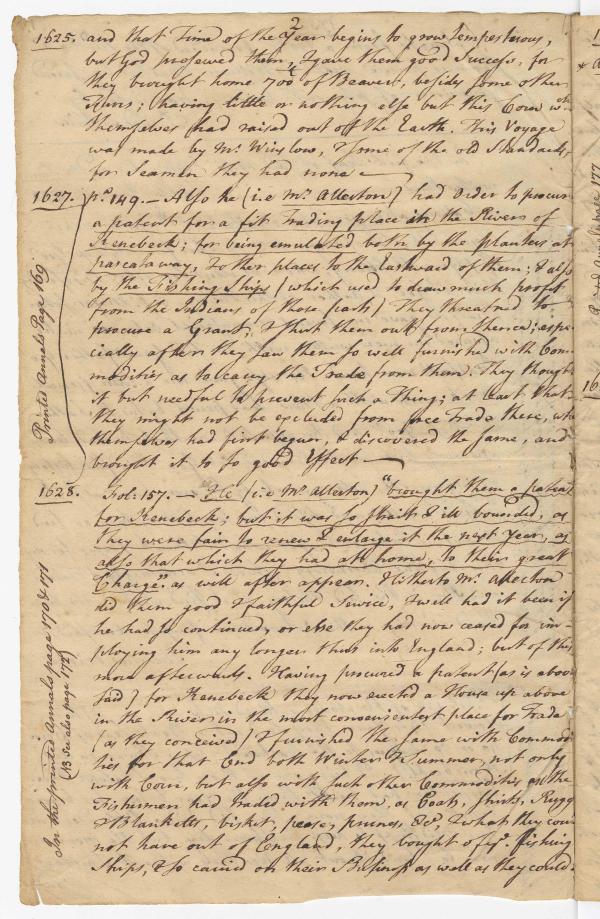 2
1625. and that Time of the Year begins to grow tempestuous,
but God preserved them, & gave them good Success, for
they brought home 700lb of Beaver, besides some other
Furrs; having little or nothing else but this Corn wch
themselves had raised out off the Earth. This Voyage
was made by Mr. Winslow, & some of the old Standards,
for Seamen they had none
1627. pa. 149. — Also he (i.e Mr. Allerton) had Order to procure
a patent for a fit Trading place in the River of
Kenebeck; for being emulated both by the planters at
pascataway, & other places to the Eastward of them; & also
by the Fishing Ships (which used to draw much profit
from the Indians of those parts) They threatned to
procure a Grant, & shut them out from Thence; espe-
cially after they saw them so well furnished with Com-
modities as to carry the Trade from them. They thought
it but needful to prevent such a Thing; at least that
they might not be excluded from free Trade there, wre
themselves had first begun, & discovered the same, and
brought it to so good Effect —
Printed Annals Page 169
1628. Fol: 157. — He (i.e Mr. Allerton) "brought them a patent
for Kenebeck; but it was so strait & ill bounded, as
they were fain to renew & enlarge it the next Year, as
also that which they had at home, to their great
Charge" as will after appear. Hitherto Mr. Allerton
did them good & faithful Service, & well had it been if
he had so continued, or else they had now ceased for im-
ploying him any longer thus into England; but of this
more afterwards. Having procured a patent (as is above
said) for Kenebeck they now erected a House up above
in the River in the most convenientest place for Trade
(as they conceived) & furnished the same with Commodi-
ties for that End both Winter & Summer, not only
with Corn, but also with such other Commodities as the
Fishermen had traded with them, as Coats, Shirts, Ruggs
& Blanketts, bisket, pease, prunes, &c, & what they cou
not have out of England, they bought of ye. fishing
Ships, & so carried on their Business as well as they could.
In the printed Annals page 170 & 171
(NB see also page 172)